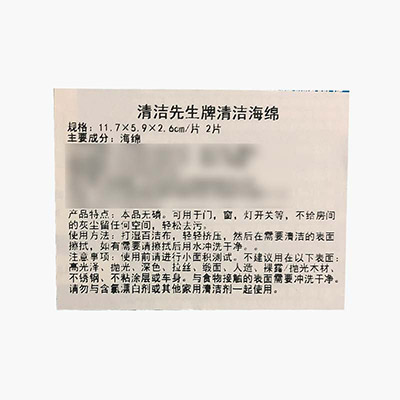 清洁先生牌清洁海绵
规格：11.7×5.9×2.6cm/片 2片
主要成分：海绵
产品特点：本品无磷。可用于门，窗，灯开关等，不给房间
的灰尘留任何空间，轻松去污。
使用方法：打湿百洁布，轻轻挤压，然后在需要清洁的表面
擦拭，如有需要请擦拭后用水冲洗干净。。
注意事项：使用前请进行小面积测试。不建议用在以下表面：
高光泽、抛光、深色、拉丝、缎面、人造、裸露/抛光木材、
不锈钢、不粘涂层或车身。与食物接触的表面需要冲洗干净。
请勿与含氯漂白剂或其他家用清洁剂一起使用。